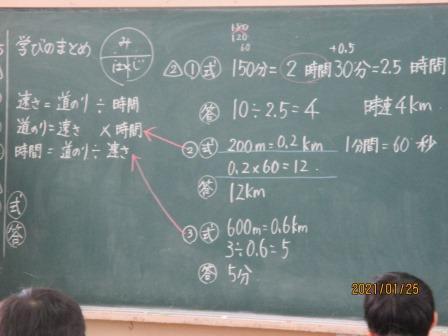 学びのまとめ
み
はじ
速さ = 道のり ÷ 時間
道のり = 速さ × 時間
時間 = 道のり ÷ 速さ
式
答
120
60
+0.5
② ① 式 150分 = 2 時間30分 = 2.5 時間
答 10÷2.5=4 時速4km
② 式 200m=0.2km 1分間=60秒
0.2×60=12.
答 12km
③ 式 600m=0.6km
3÷0.6=5
答 5分
2021/01/25